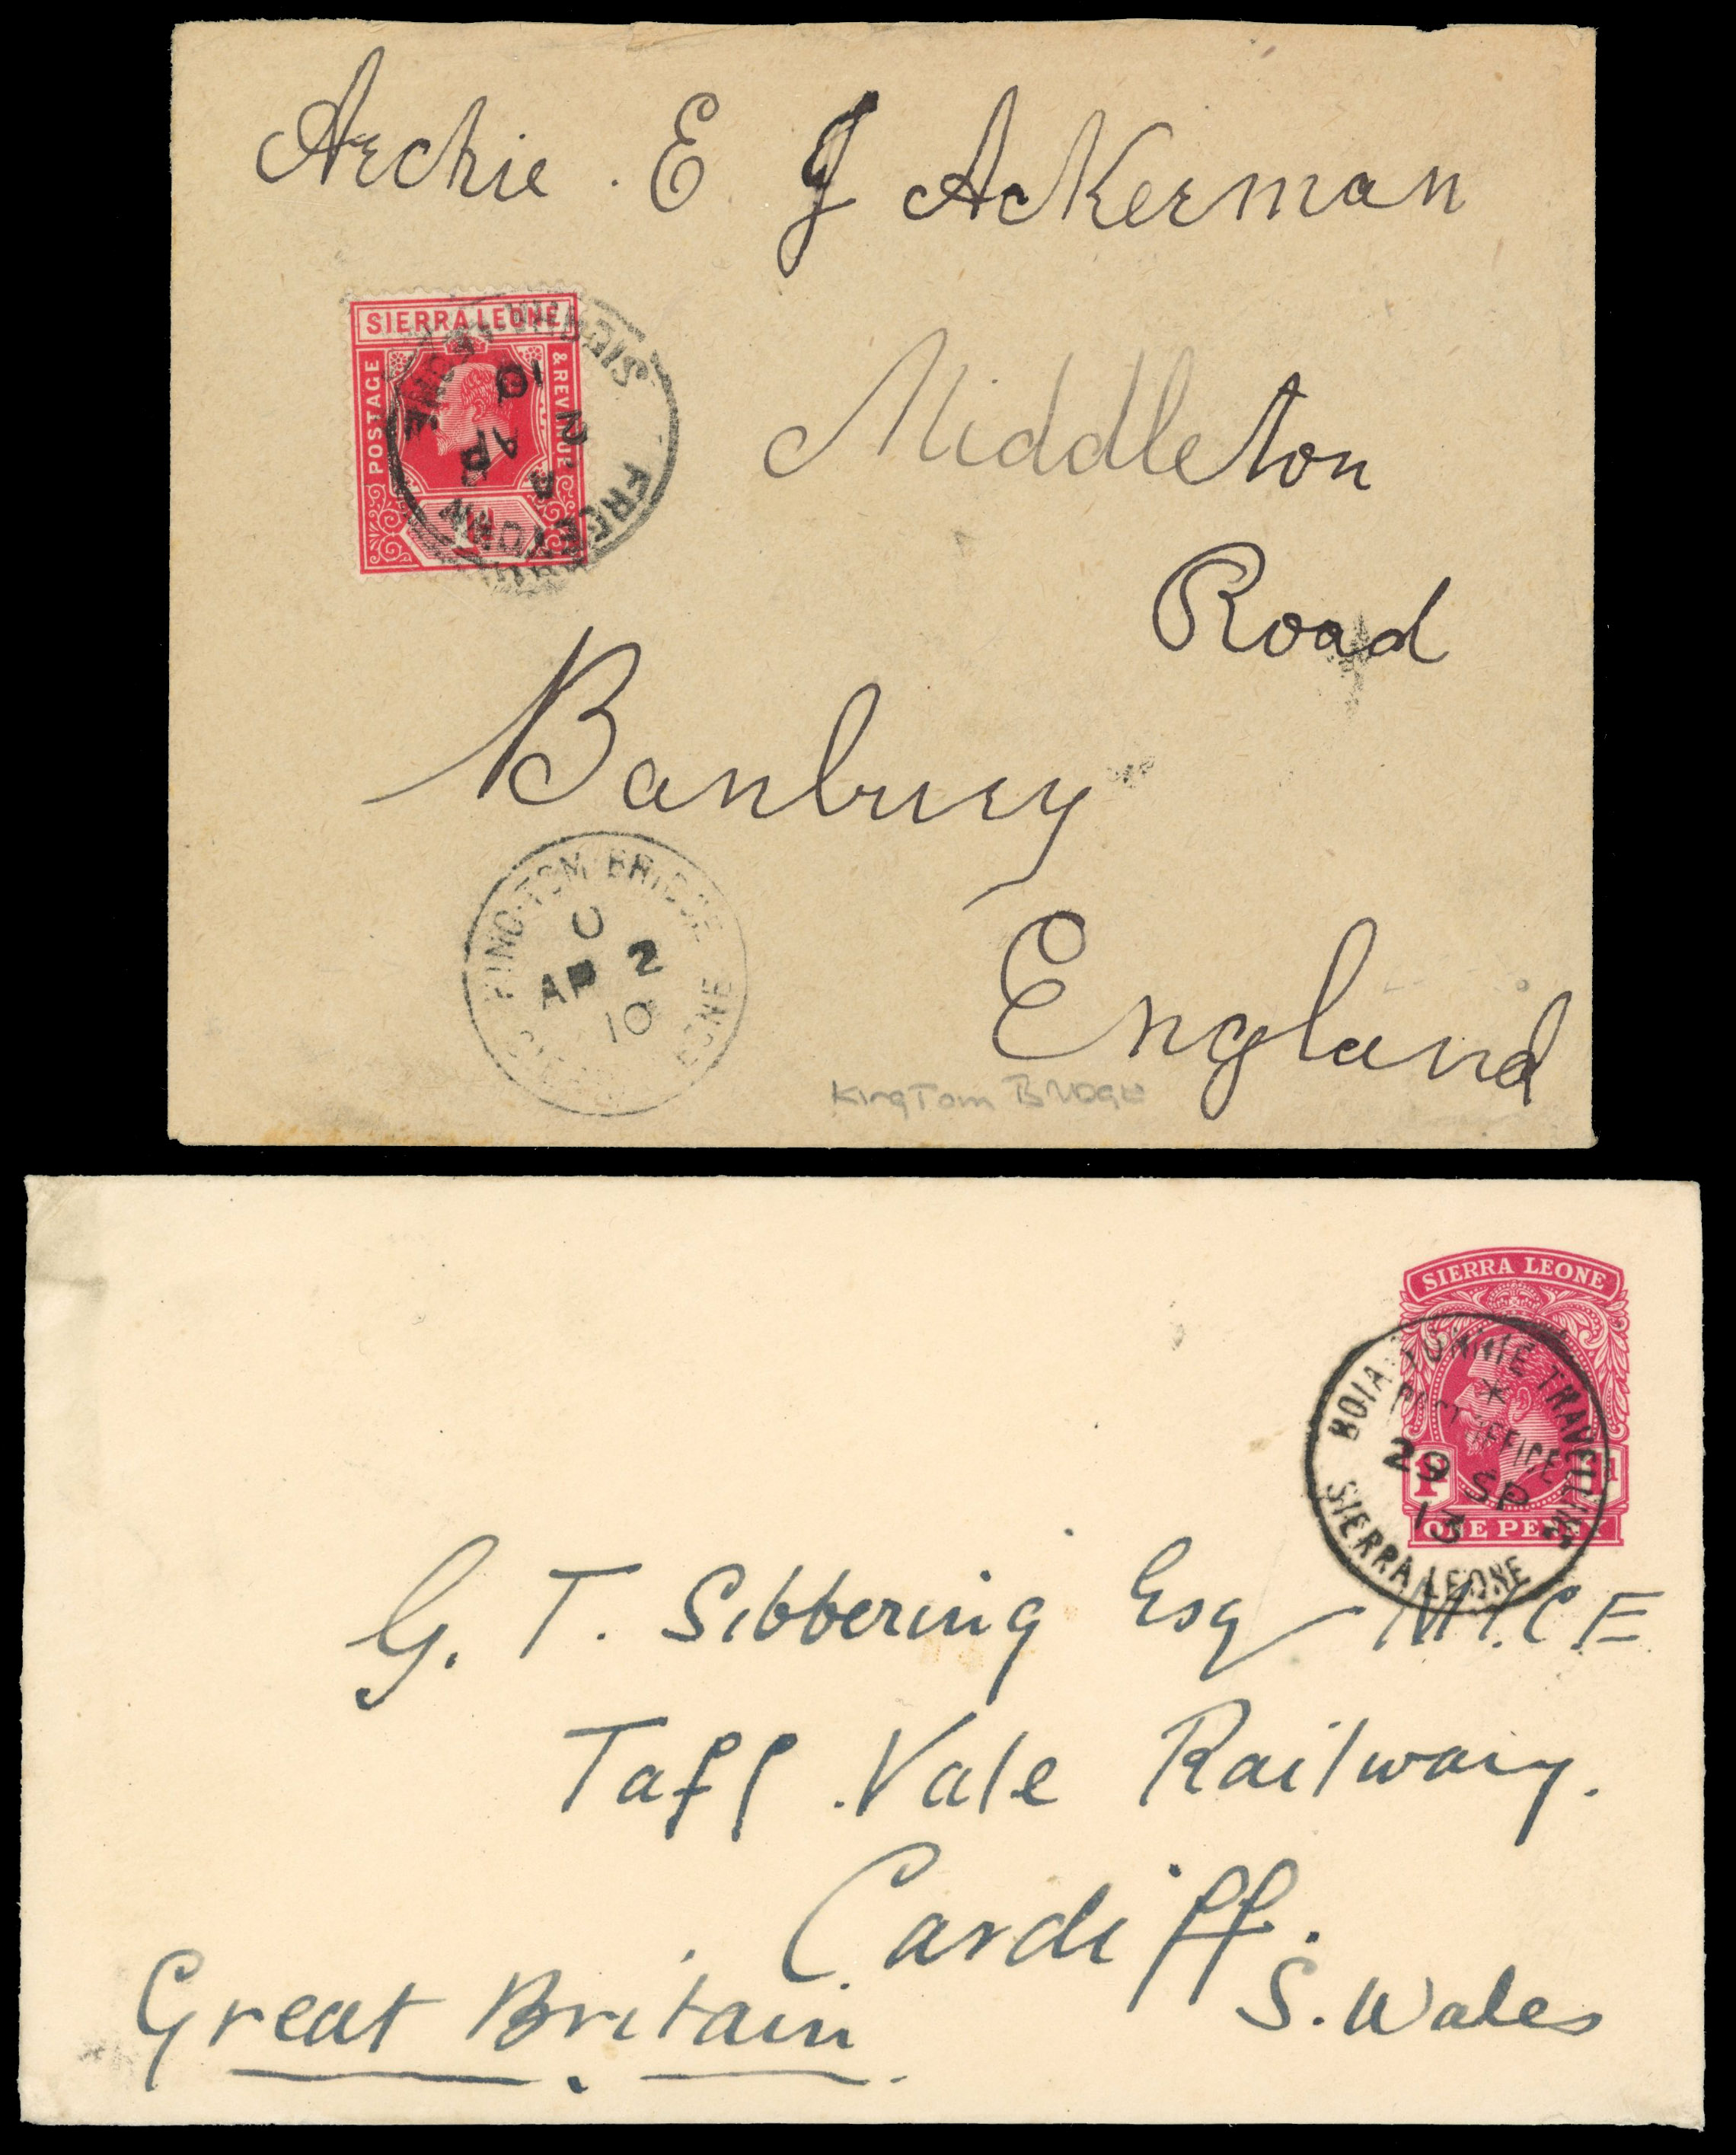 Archie . E J Ackerman
SIERRA LEONE
POSTAGE
& REVENUE
1d
SIERRA LEONE
FREETOWN
10
2
AP
A
Middleton
Road
Banbury
England
KING-TOM BRIDGE
AP 2
10
KingTom Bridge
SIERRA LEONE
1d
ONE PENNY
BOIA-YONNIE TRAVELLING
POST OFFICE
29 SP
13
SIERRA LEONE
G. T. Sibbering Esq M.I.C.E.
Taff Vale Railway.
Cardiff.
S. Wales
Great Britain.